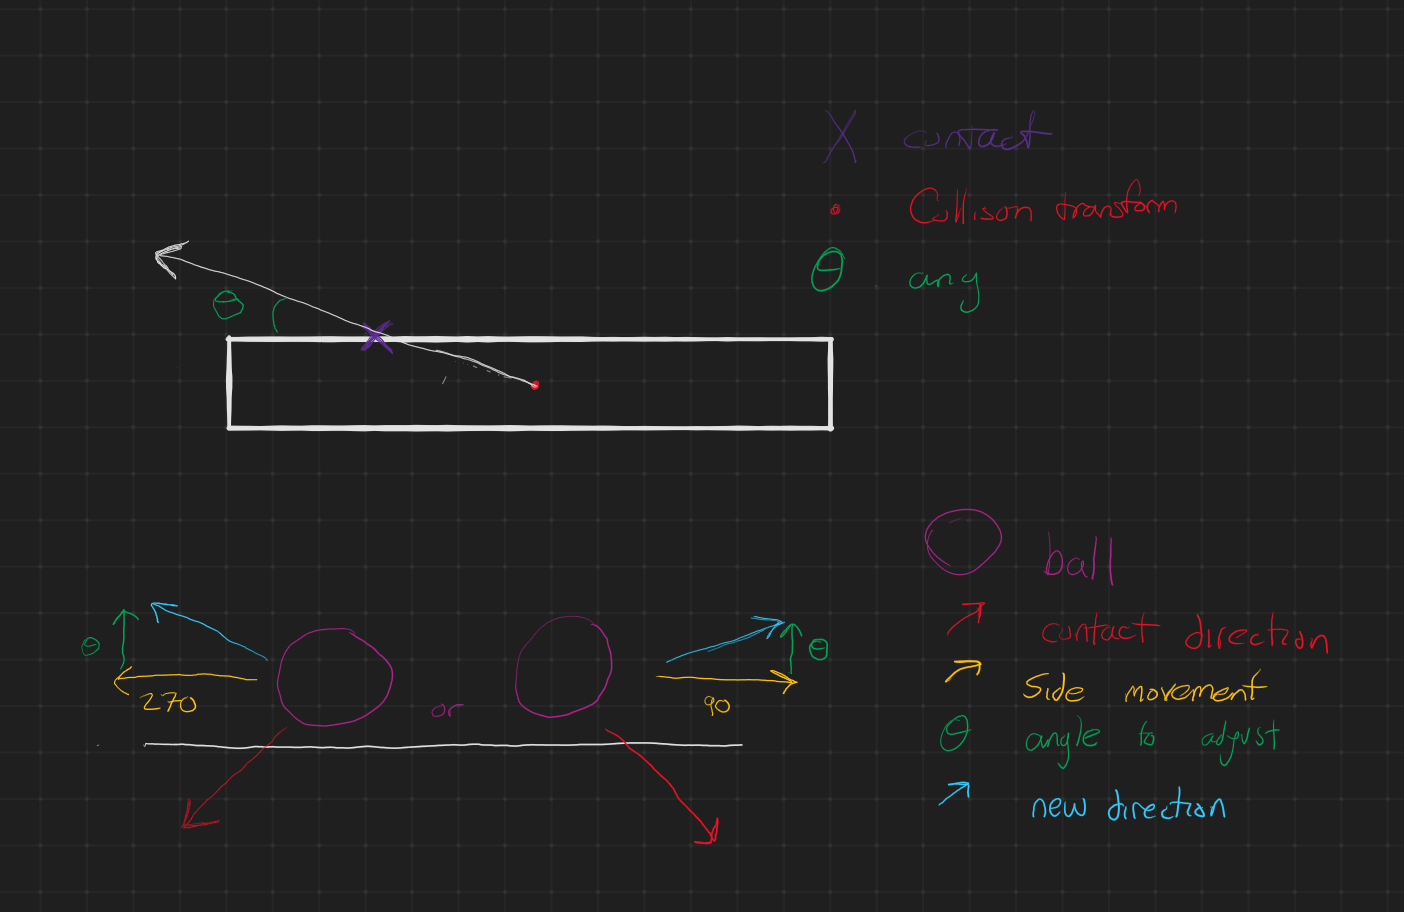 X contact
Collison transform
θ any
θ
ball
contact direction
Side movement
θ angle to adjust
new direction
θ
270
or
90
θ